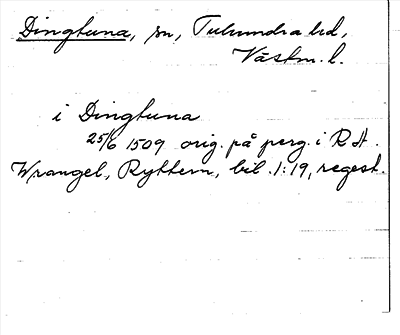 Dingtuna, sn, Tuhundra hd,
Västm. l.
i Dingtuna
25/6 1509 orig. på perg. i R A.
Wrangel, Ryttern, bil. 1:19, regest.